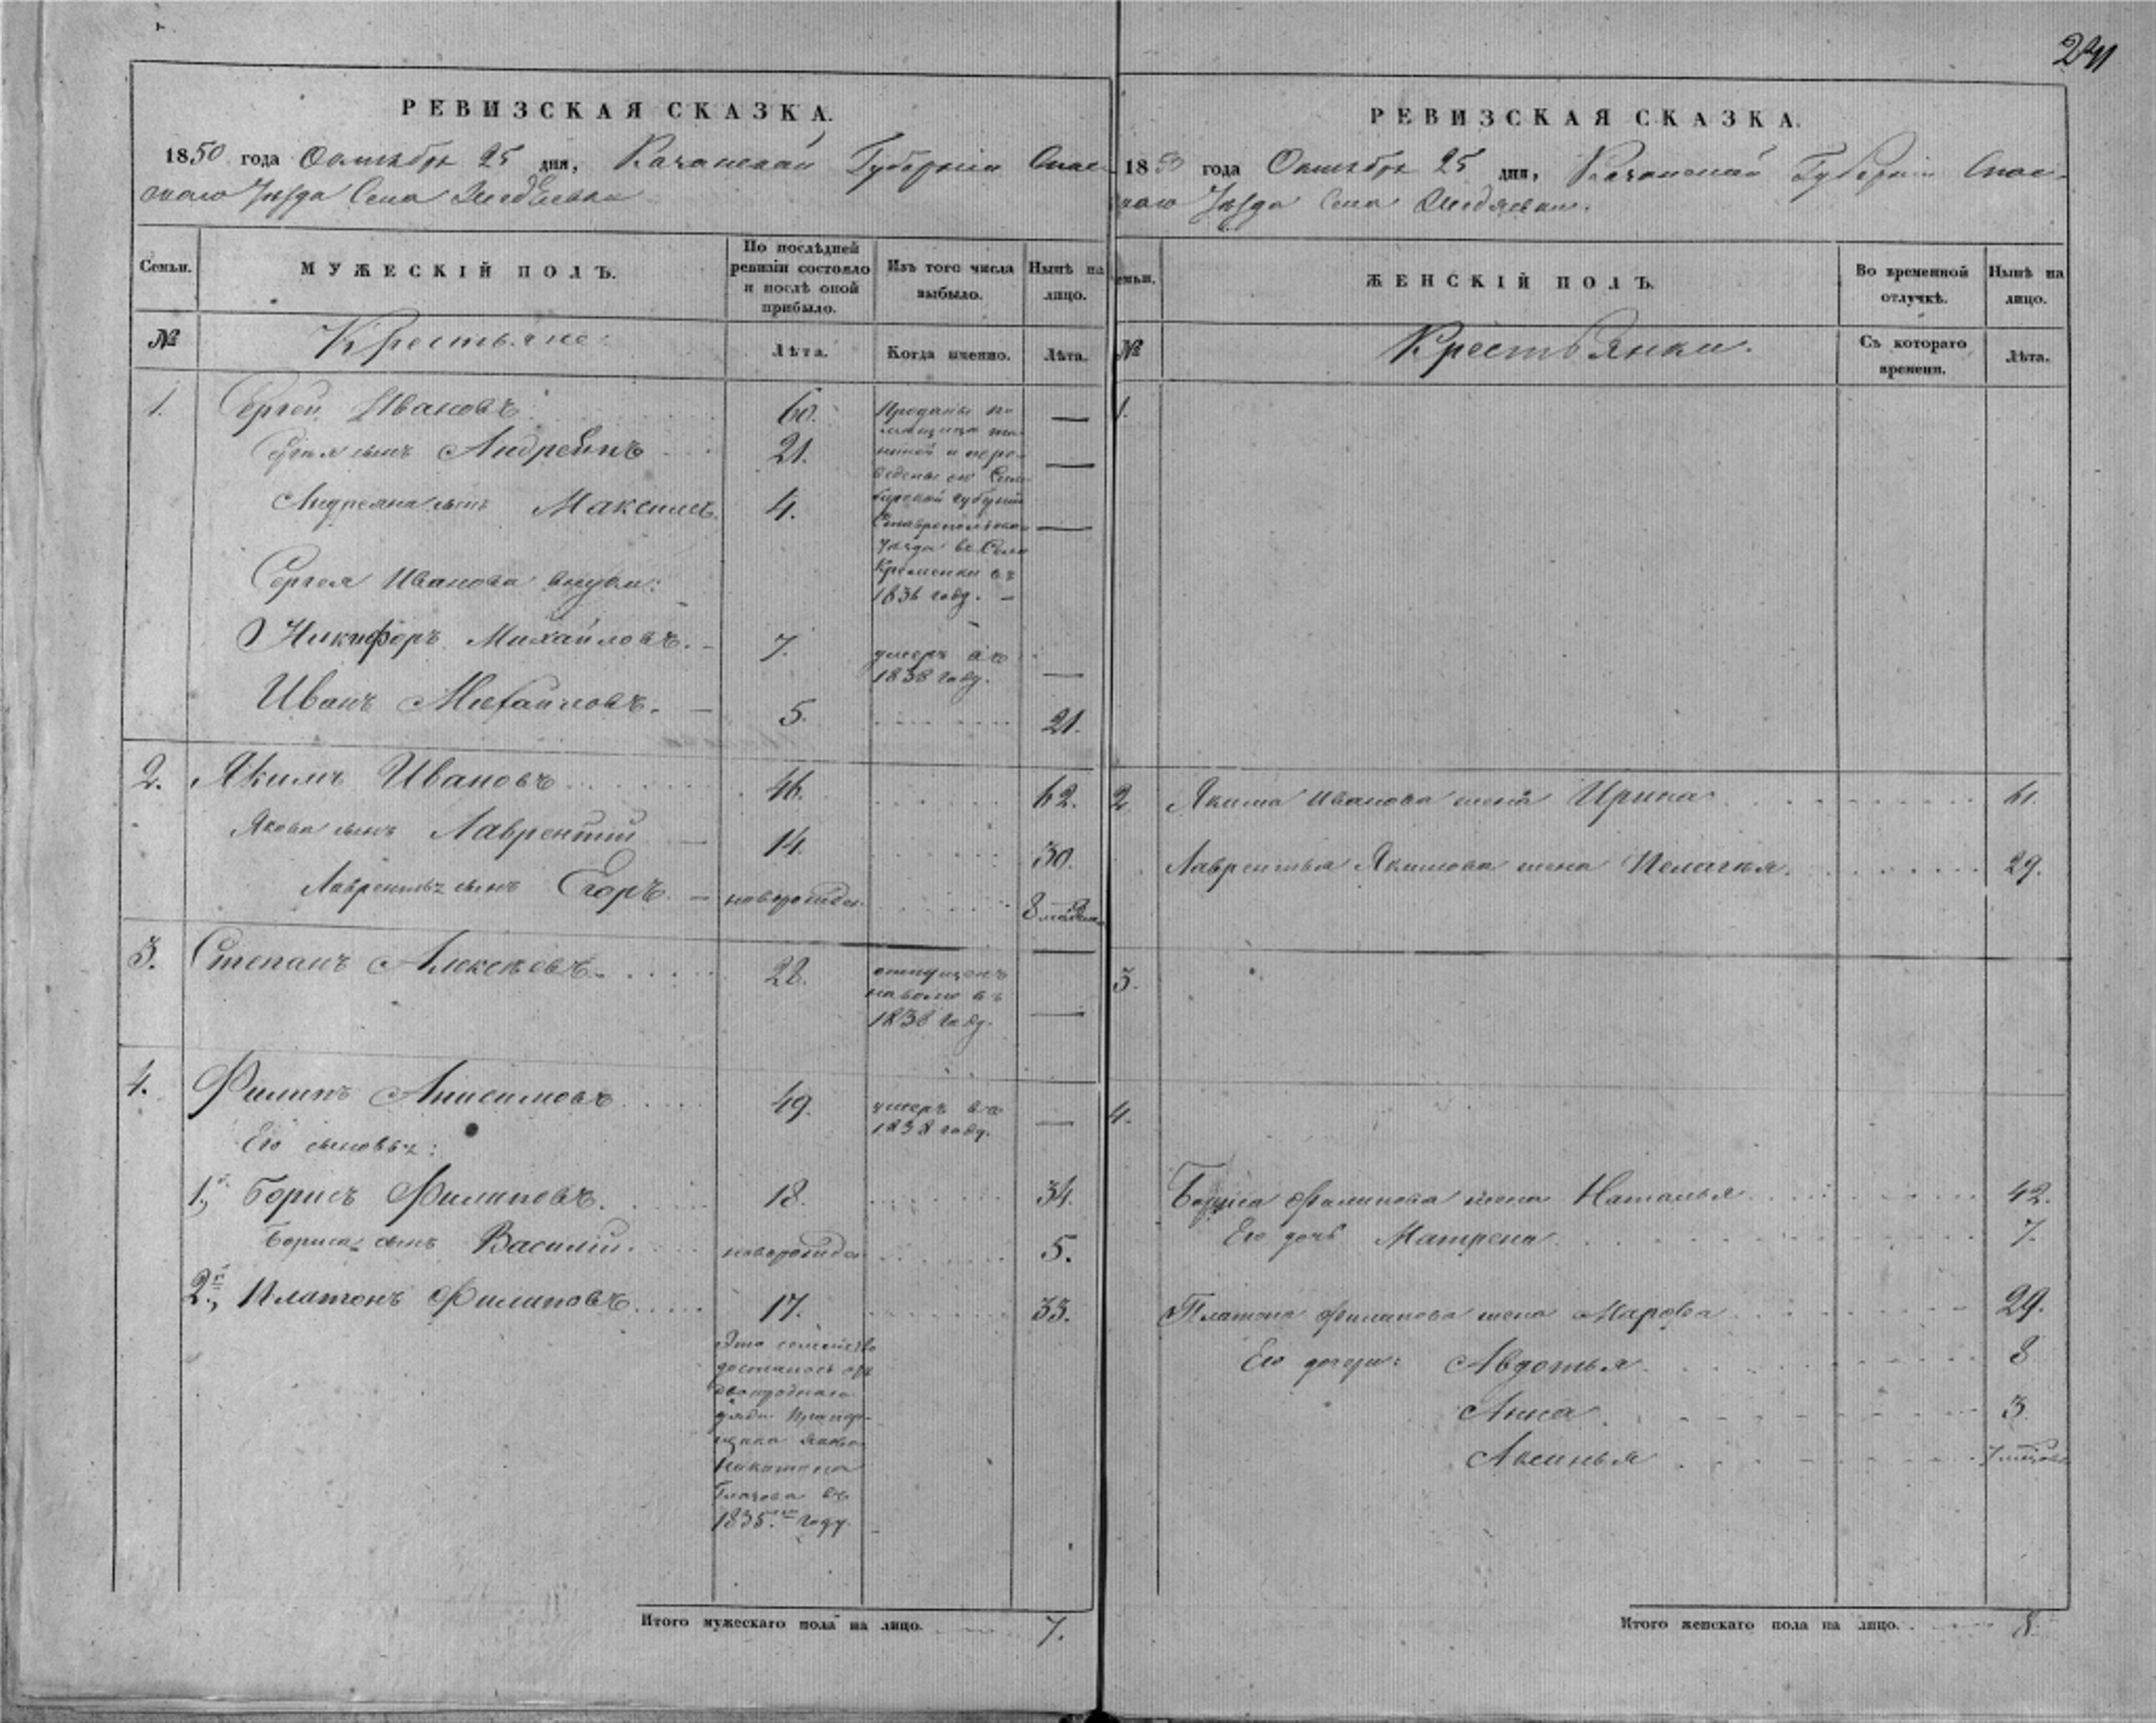 241
РЕВИЗСКАЯ СКАЗКА.
1850 года Октября 25 дня, Казанской Губернии Спас-
скаго Уѣзда Села
Семьи.
МУЖЕСКІЙ ПОЛЪ.
По послѣдней ревизіи состояло и послѣ оной прибыло.
Изъ того числа выбыло.
Нынѣ на лицо.
№
Крестьяне:
Лѣта.
Когда именно.
Лѣта.
1. Сергей Ивановъ 60. —
Сергея сынъ Андреянъ 21. —
Андреяна сынъ Максимъ. 4. —
Проданы по-
мещице
и пере-
ведены
бирской губерніи
Ставропольскаго
Уезда въ Село
Кременки въ
1836 году. —
Сергея Иванова внуки:
Никифоръ Михайловъ. — 7. умеръ въ
1838 году. —
Иванъ Михайловъ. — 5. 21.
2. Якимъ Ивановъ 46. 62.
Якова сынъ Лаврентий — 14. 30.
Лаврентья сынъ Егоръ. — новорожден. 8
3. Степанъ Алексѣевъ. 28. отпущенъ
на волю въ
1838 году. —
4. Филипъ Анисимовъ 49. умеръ въ
1838 году. —
Его сыновья:
1й, Борисъ Филиповъ. 18. 34.
Бориса сынъ Василий. новорожден 5.
2й, Платонъ Филиповъ 17. 33.
Это семейство
досталось отъ
двоюроднаго
дяди Прапор-
щика

Глазова въ
1835.м году.
Итого мужескаго пола на лицо. 7.
РЕВИЗСКАЯ СКАЗКА.
1850 года Октября 25 дня, Казанской Губерніи Спас-
скаго Уѣзда Села
семьи.
ЖЕНСКІЙ ПОЛЪ.
Во временной отлучкѣ.
Нынѣ на лицо.
№
Крестьянки.
Съ котораго времени.
Лѣта.
1.
2. Якима Иванова жена Ирина 61.
Лаврентья Якимова жена Пелагея. 29.
3.
4.
Бориса Филипова жена Наталья 42.
Его дочь Матрена 7.
Платона Филипова жена Марфа 29.
Его дочери: Авдотья. 8
Анна 3.
Аксинья 7
Итого женскаго пола на лицо. 8.